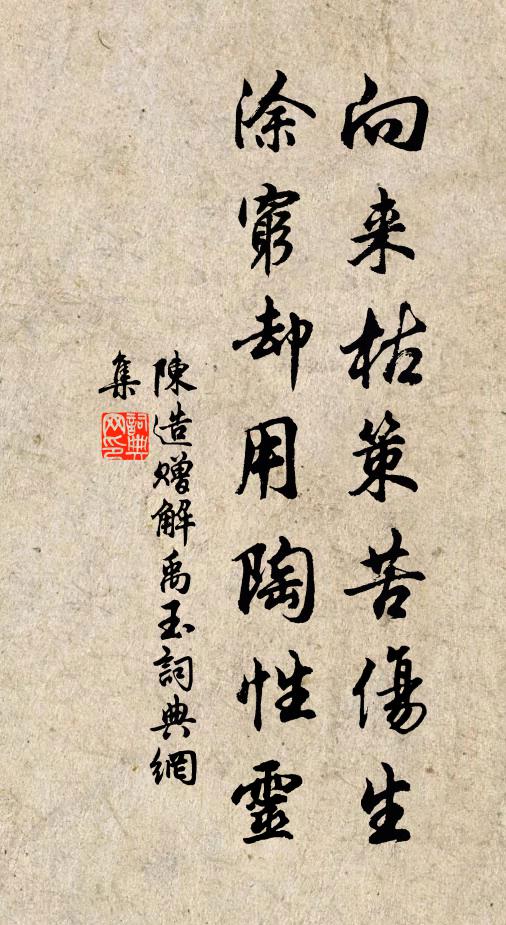 向来枯策苦傷生
涂窮却用陶性靈
陳造贈解禹玉詞典網
集
詞典
网印